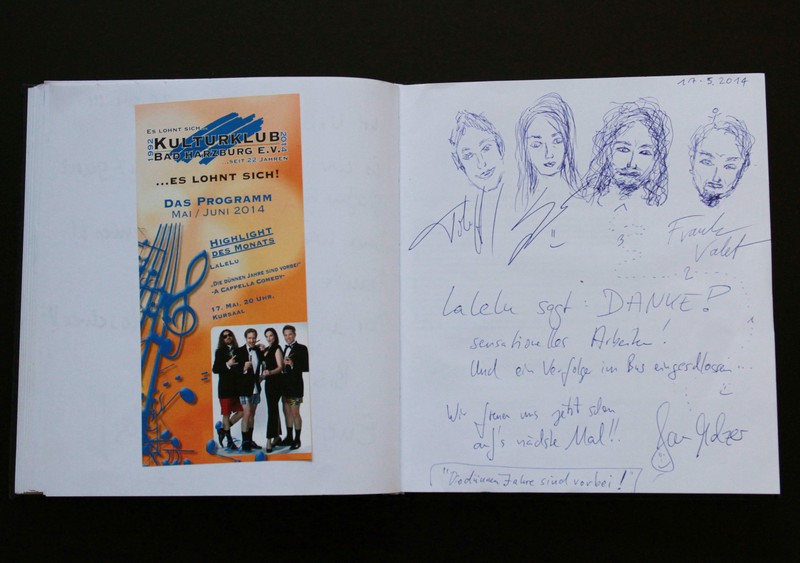 ES LOHNT SICH...
1992 KULTURKLUB 2014
BAD HARZBURG E.V.
...SEIT 22 JAHREN
...ES LOHNT SICH!
DAS PROGRAMM
MAI / JUNI 2014
HIGHLIGHT
DES MONATS
LALELU
„DIE DÜNNEN JAHRE SIND VORBEI"
-A CAPPELLA COMEDY-
17. MAI, 20 UHR,
KURSAAL
17.5.2014
Frank
Valet
Lalelu sagt: DANKE!
sensationelles Arbeiten!
Und ein Verfolger im Bus eingeschlossen...
Wir freuen uns jetzt schon
auf's nächste Mal!!
"Die dünnen Jahre sind vorbei!"